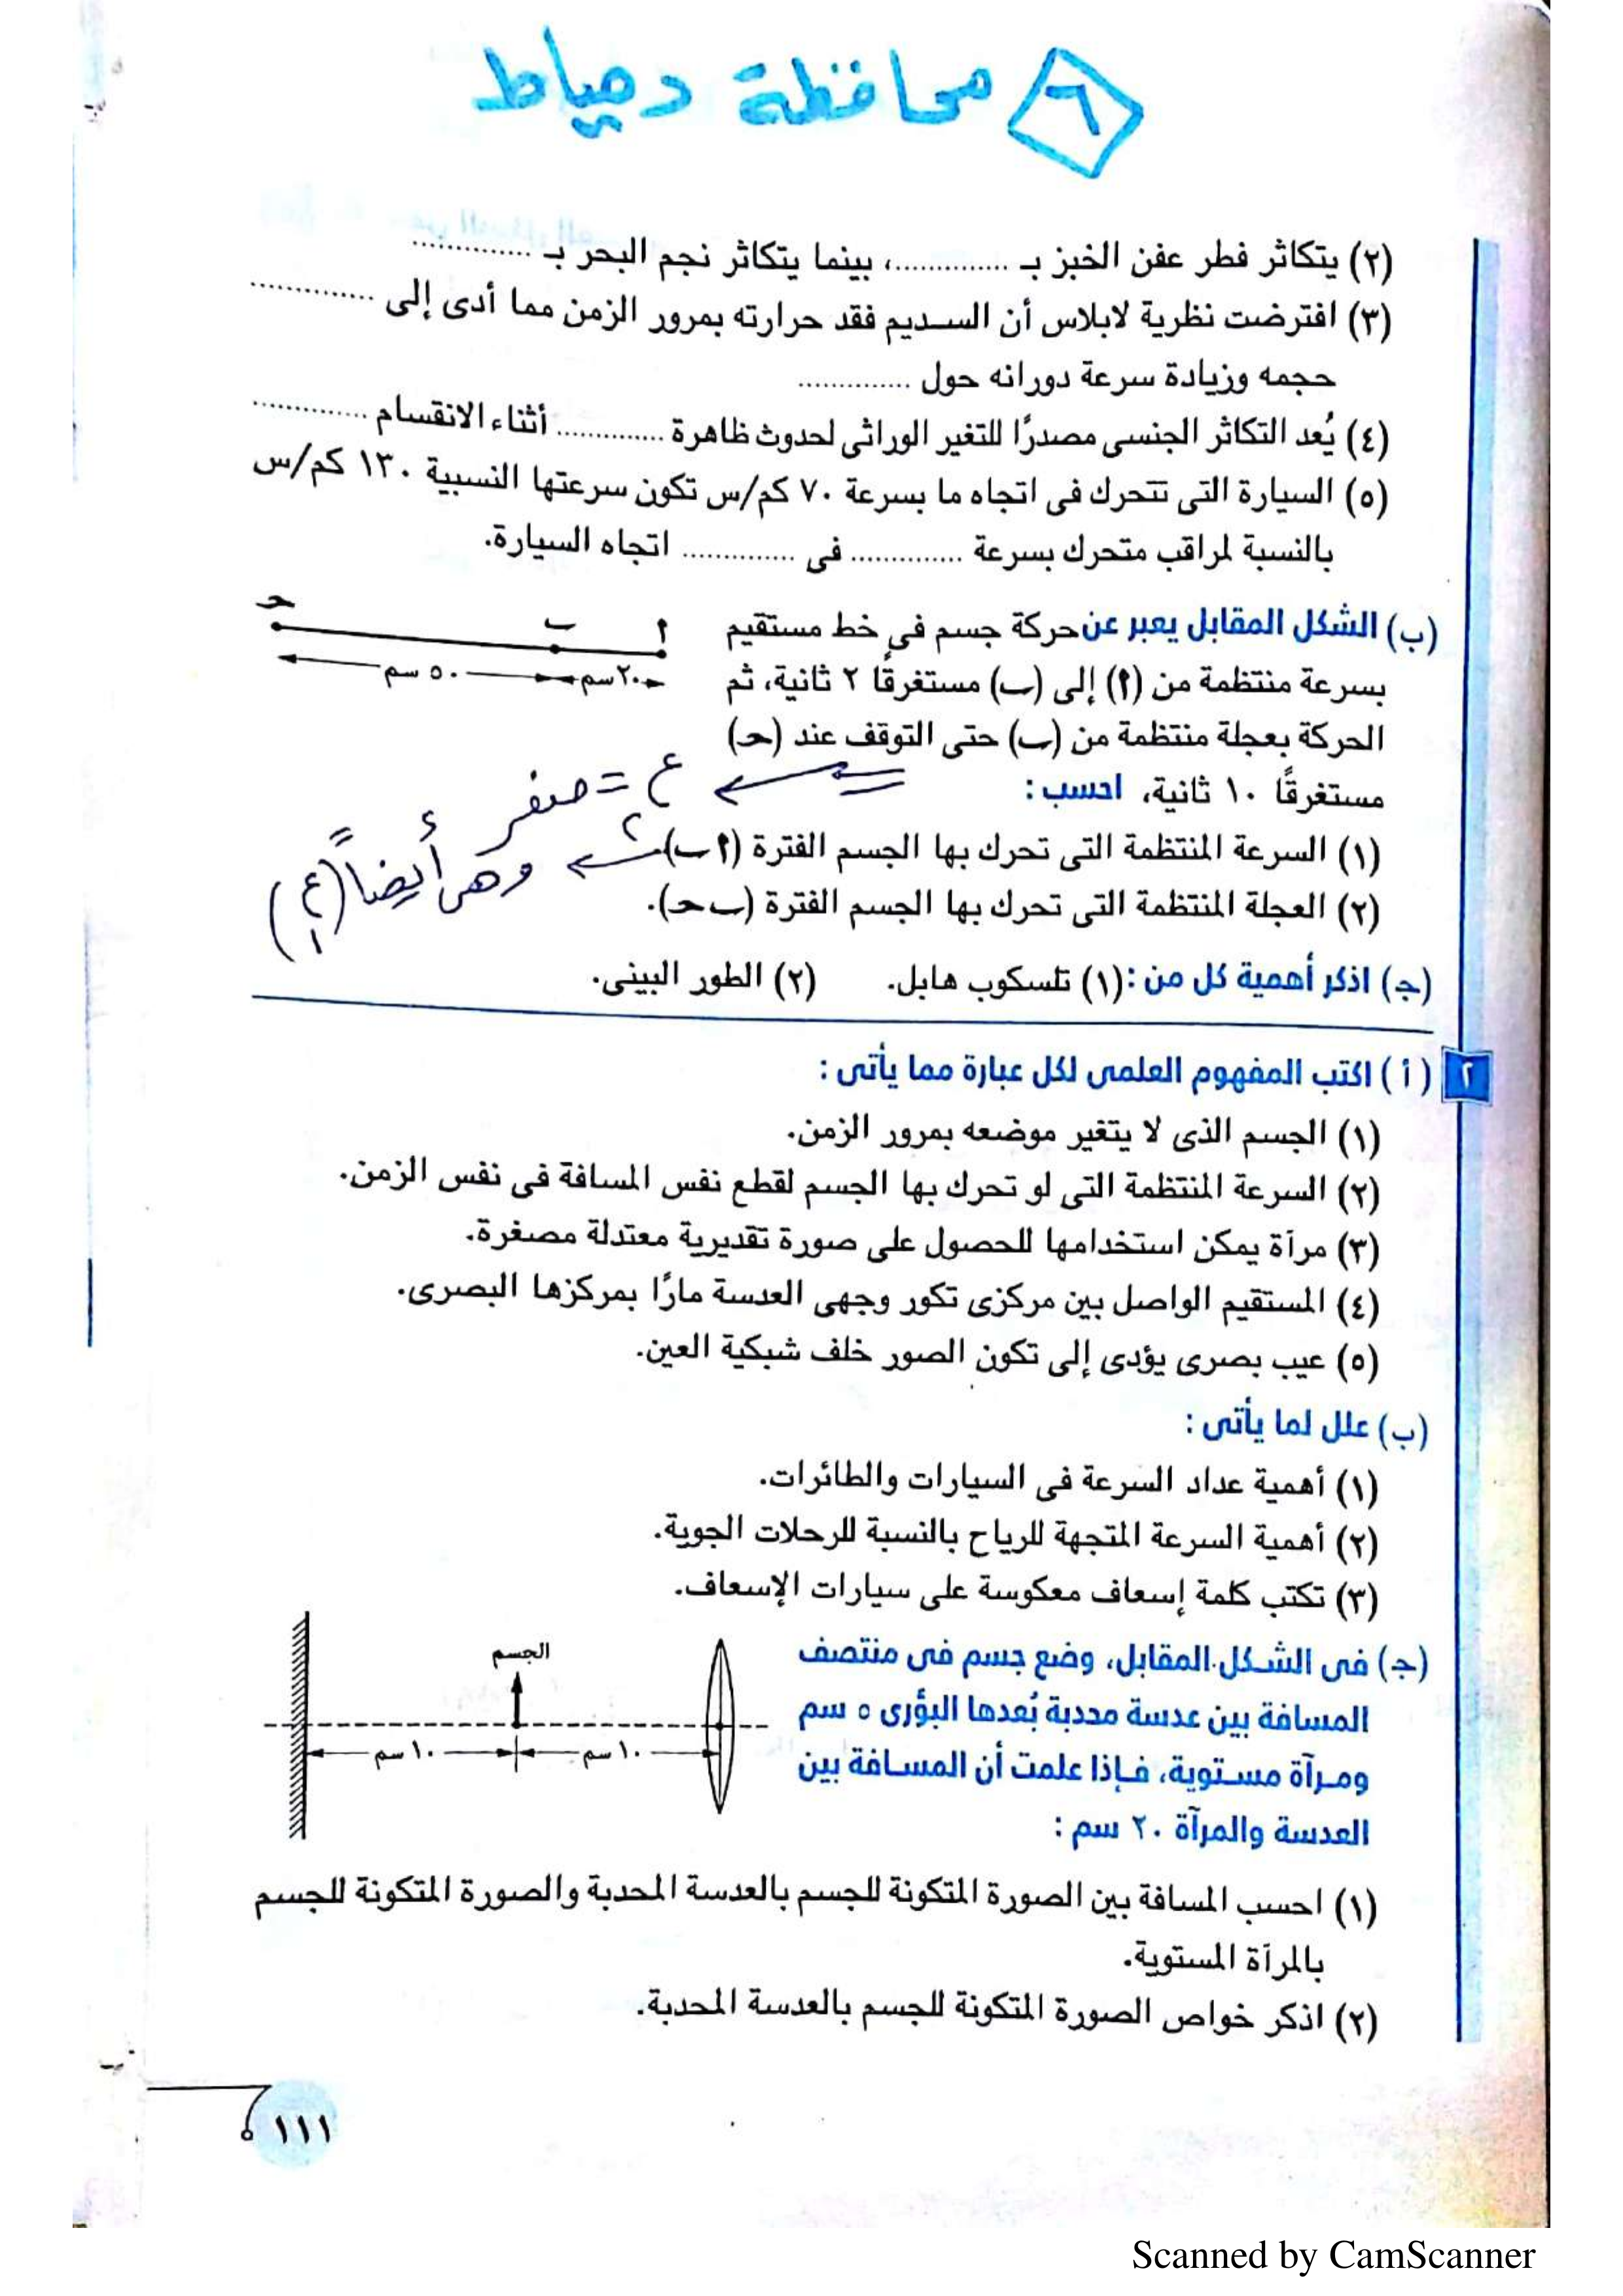 ٦ محافظة دمياط
(٢) يتكاثر فطر عفن الخبز بـ ..............، بينما يتكاثر نجم البحر بـ ..............
(٣) افترضت نظرية لابلاس أن السديم فقد حرارته بمرور الزمن مما أدى إلى ..............
حجمه وزيادة سرعة دورانه حول ..............
(٤) يُعد التكاثر الجنسى مصدرًا للتغير الوراثى لحدوث ظاهرة .............. أثناء الانقسام ..............
(٥) السيارة التى تتحرك فى اتجاه ما بسرعة ٧٠ كم/س تكون سرعتها النسبية ١٣٠ كم/س
بالنسبة لمراقب متحرك بسرعة .............. فى .............. اتجاه السيارة.
(ب) الشكل المقابل يعبر عن حركة جسم فى خط مستقيم
بسرعة منتظمة من (أ) إلى (ب) مستغرقًا ٢ ثانية، ثم
الحركة بعجلة منتظمة من (ب) حتى التوقف عند (حـ)
مستغرقًا ١٠ ثانية، احسب :
أ ب حـ
٢٠ سم ٥٠ سم
ع٢ = صفر
(١) السرعة المنتظمة التى تحرك بها الجسم الفترة (أ ب).
وهى أيضاً (ع١)
(٢) العجلة المنتظمة التى تحرك بها الجسم الفترة (ب حـ).
(جـ) اذكر أهمية كل من : (١) تلسكوب هابل. (٢) الطور البينى.
٢ (أ) اكتب المفهوم العلمى لكل عبارة مما يأتى :
(١) الجسم الذى لا يتغير موضعه بمرور الزمن.
(٢) السرعة المنتظمة التى لو تحرك بها الجسم لقطع نفس المسافة فى نفس الزمن.
(٣) مرآة يمكن استخدامها للحصول على صورة تقديرية معتدلة مصغرة.
(٤) المستقيم الواصل بين مركزى تكور وجهى العدسة مارًا بمركزها البصرى.
(٥) عيب بصرى يؤدى إلى تكون الصور خلف شبكية العين.
(ب) علل لما يأتى :
(١) أهمية عداد السرعة فى السيارات والطائرات.
(٢) أهمية السرعة المتجهة للرياح بالنسبة للرحلات الجوية.
(٣) تكتب كلمة إسعاف معكوسة على سيارات الإسعاف.
(جـ) فى الشكل المقابل، وضع جسم فى منتصف
المسافة بين عدسة محدبة بُعدها البؤرى ٥ سم
ومرآة مستوية، فإذا علمت أن المسافة بين
العدسة والمرآة ٢٠ سم :
الجسم
١٠ سم ١٠ سم
(١) احسب المسافة بين الصورة المتكونة للجسم بالعدسة المحدبة والصورة المتكونة للجسم
بالمرآة المستوية.
(٢) اذكر خواص الصورة المتكونة للجسم بالعدسة المحدبة.
١١١
Scanned by CamScanner